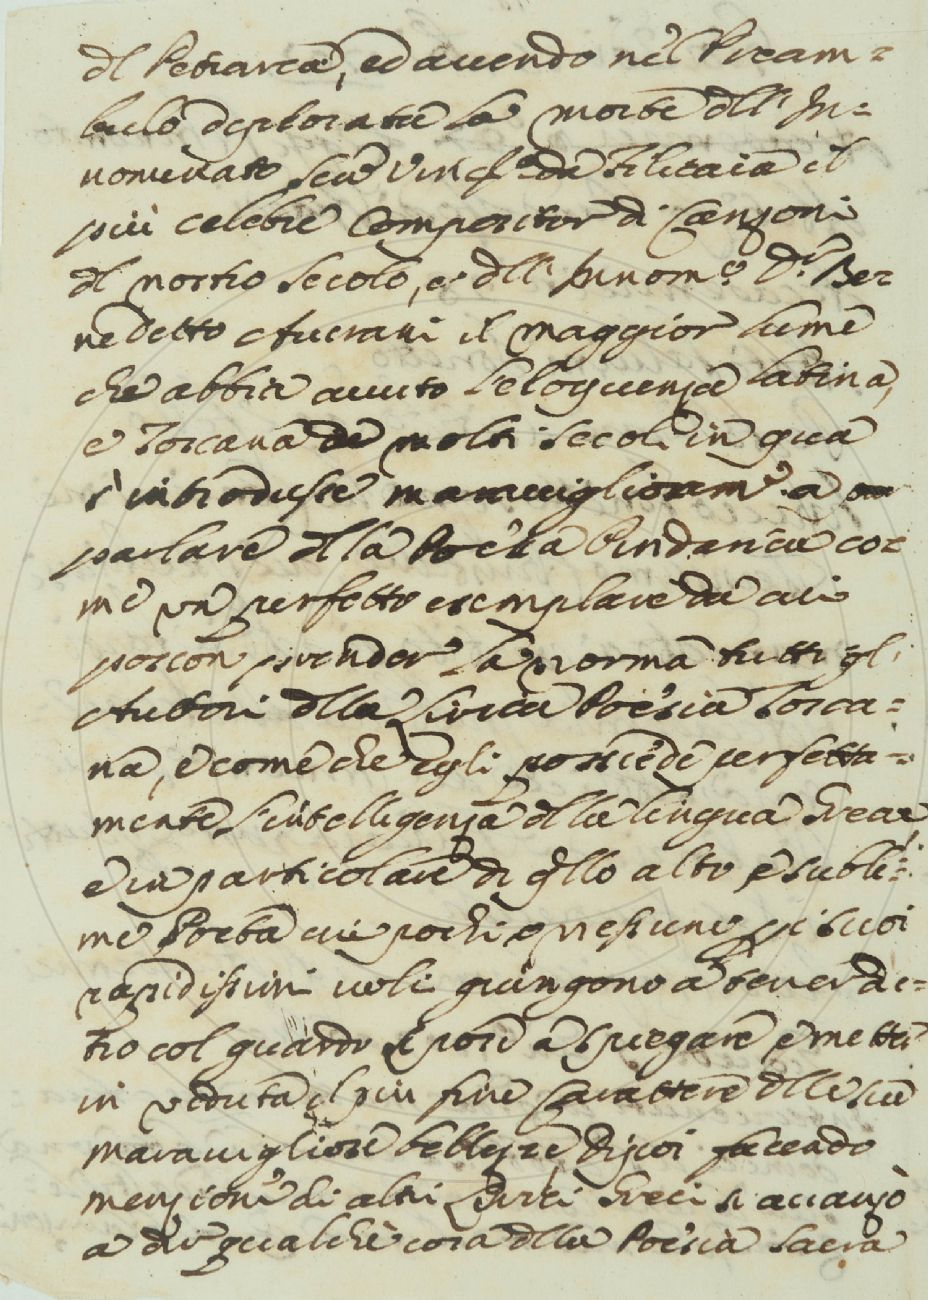 dl Petrarca, ed avendo nel Pream=
bulo deplorate la morte dll' In=
nominato Sen.r Vinc.o da Filicaia il
più celebre Compositor di Canzoni
dl nostro secolo, e dll' Innom.o D.r Be=
nedetto Averani il maggior lume
che abbia avuto l'eloquenza latina,
e Toscana da molti secoli in qua
s'introdusse maravigliosam.e a
parlare dlla Poesia Pindarica co=
me un perfetto esemplare da cui
posson prender la norma tutti gli
Autori dlla Lirica Poesia Tosca=
na, e come che egli possiede perfetta=
mente l'intelligenza dlla lingua Greca,
e in particolare di qllo alto e subli=
me Poeta cui pochi o nessuno pe i suoi
rapidissimi voli giungono a tener die=
tro col guardo si pose a spiegare e mettere
in veduta il più fine Carattere dlle sue
maravigliose bellezze di poi facendo
menzione di altri Lirici Greci si avanzò
a dir qualche cosa dlla Poesia Sacra